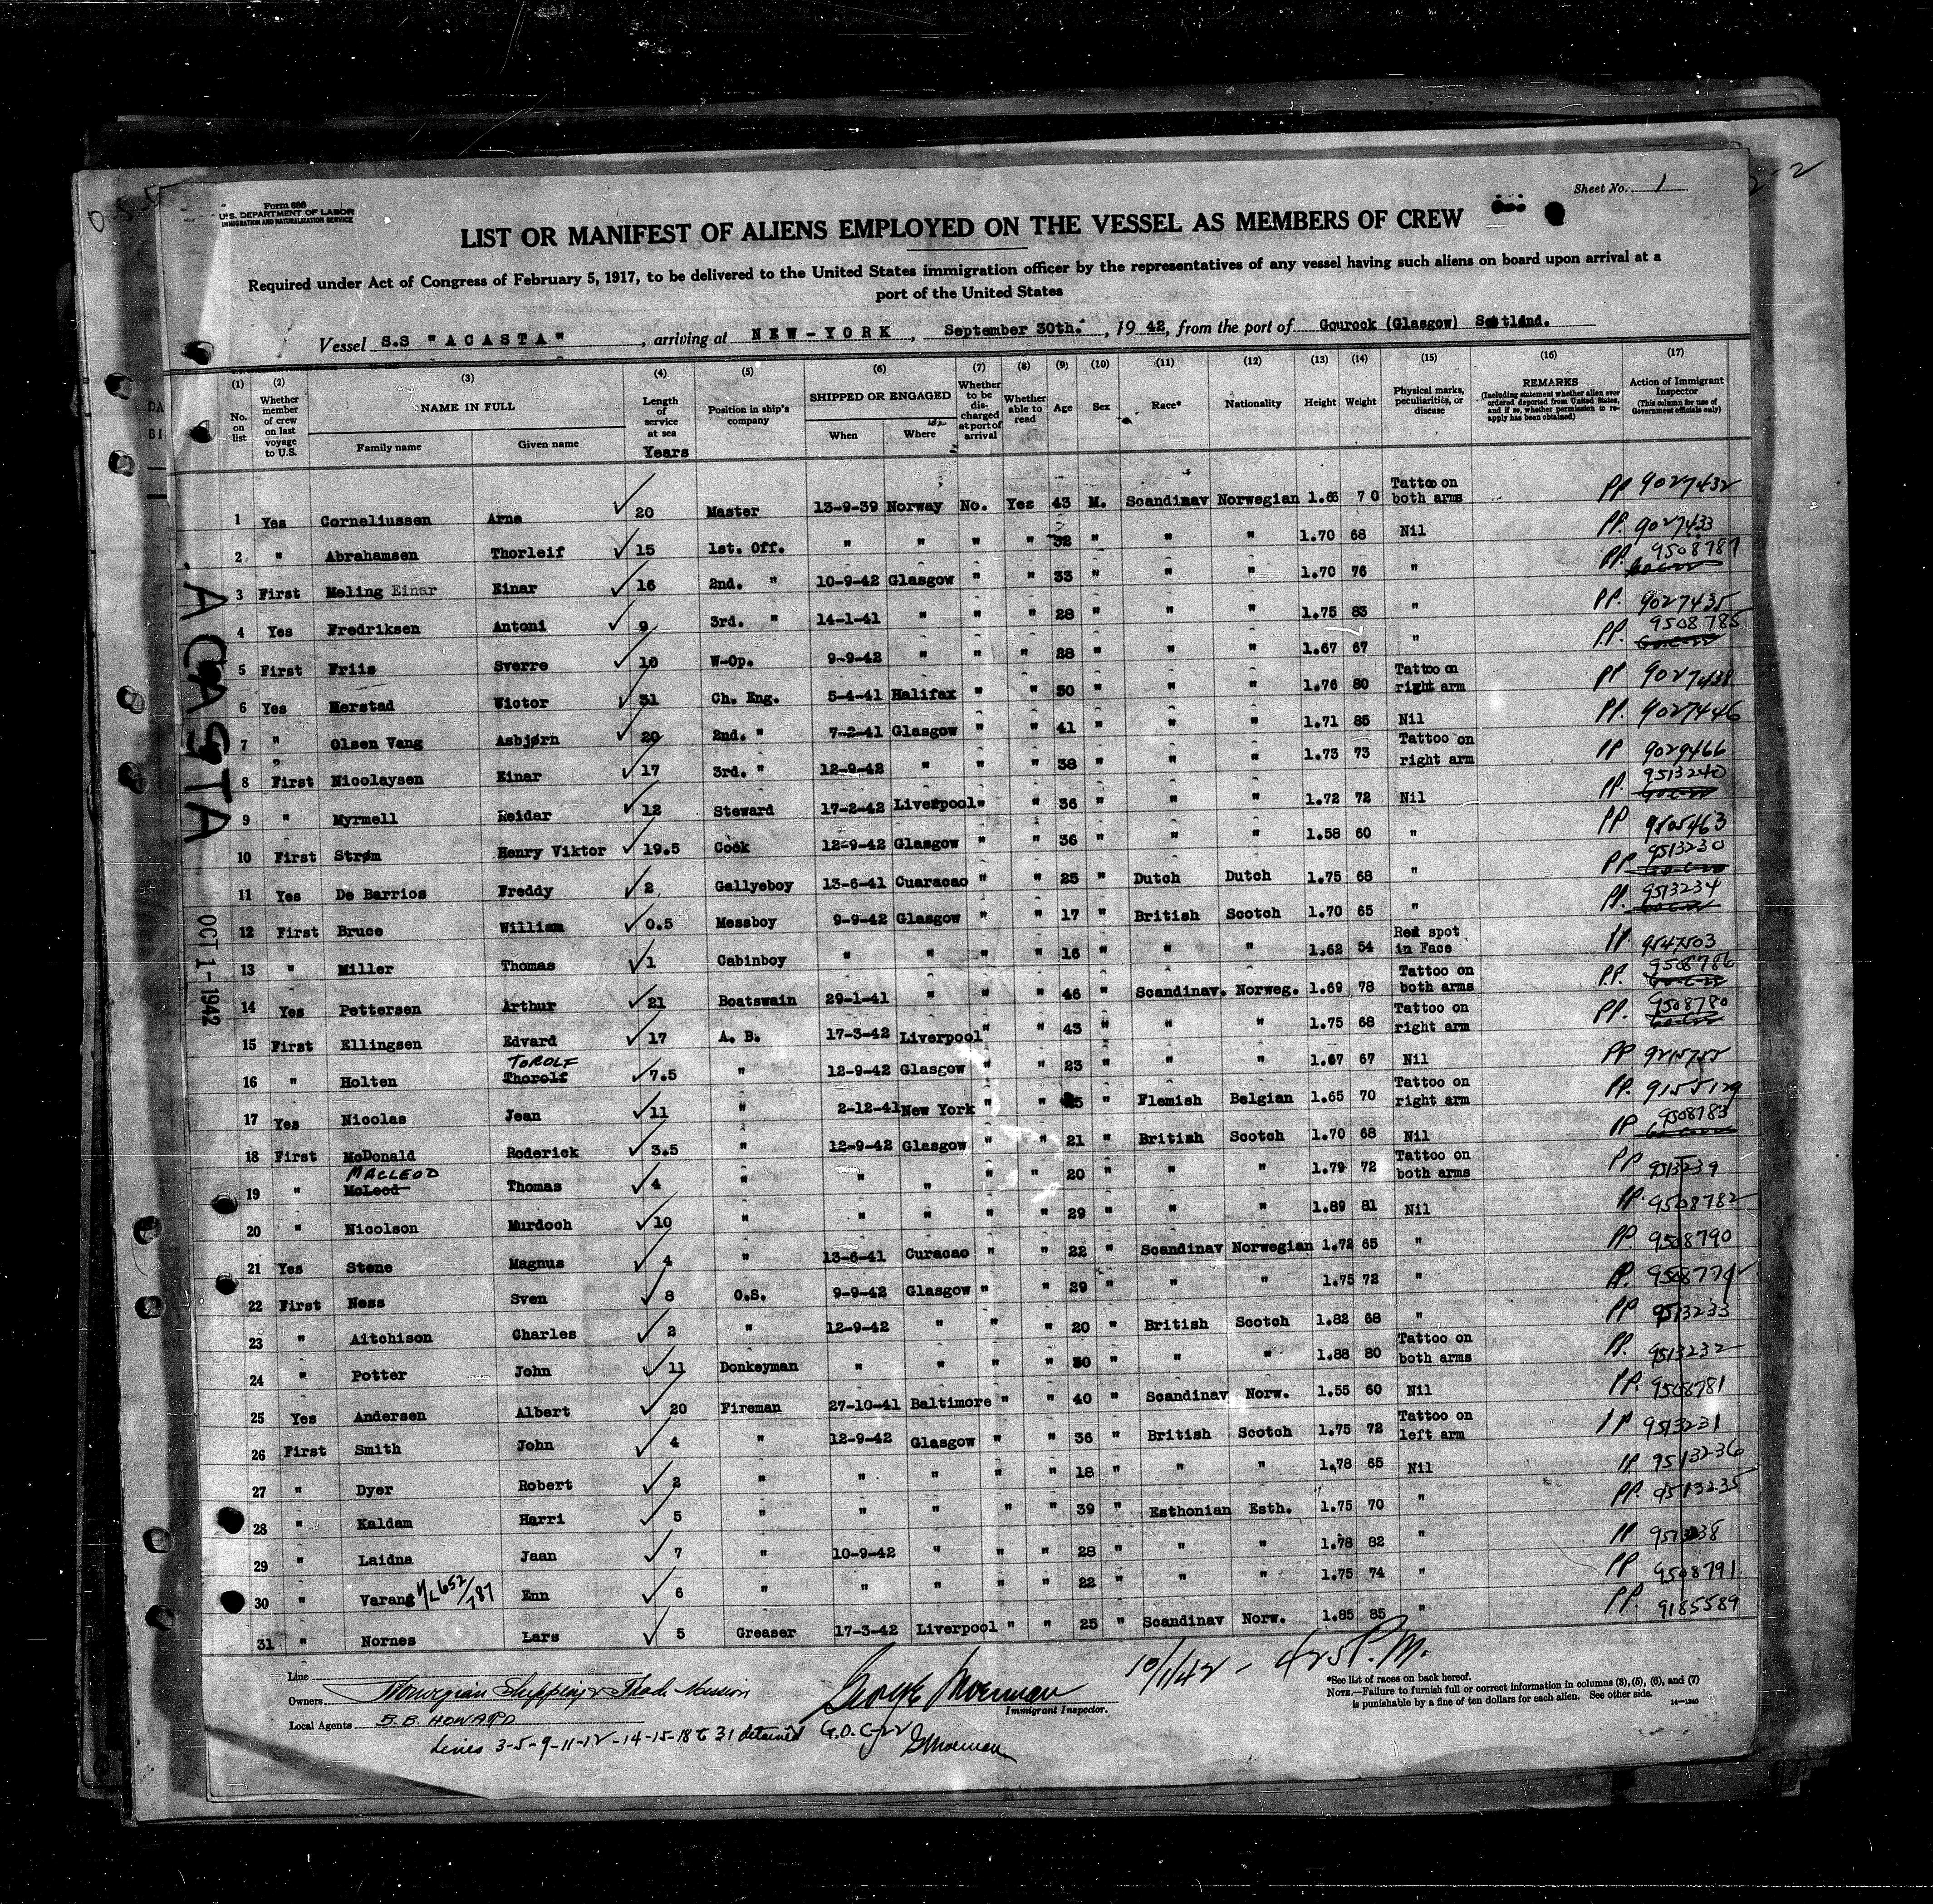 Sheet No. 1
Form 680
U.S. DEPARTMENT OF LABOR
IMMIGRATION AND NATURALIZATION SERVICE
LIST OR MANIFEST OF ALIENS EMPLOYED ON THE VESSEL AS MEMBERS OF CREW
Required under Act of Congress of February 5, 1917, to be delivered to the United States immigration officer by the representatives of any vessel having such aliens on board upon arrival at a
port of the United States
Vessel S.S "ACASTA", arriving at NEW-YORK, September 30th., 1942, from the port of Gourock (Glasgow) Scotland.
(1) (2) (3) (4) (5) (6) (7) (8) (9) (10) (11) (12) (13) (14) (15) (16) (17)
No. on list
Whether member of crew on last voyage to U.S.
NAME IN FULL
Family name Given name
Length of service at sea
Years
Position in ship's company
SHIPPED OR ENGAGED
When Where
Whether to be discharged at port of arrival
Whether able to read
Age
Sex
Race*
Nationality
Height
Weight
Physical marks, peculiarities, or disease
REMARKS
(Including statement whether alien ever ordered deported from United States, and if so, whether permission to reapply has been obtained)
Action of Immigrant Inspector
(This column for use of Government officials only)
1 Yes Corneliussen Arne 20 Master 13-9-39 Norway No. Yes 43 M. Scandinav Norwegian 1.65 70 Tattoo on both arms PP 9027432
2 " Abrahamsen Thorleif 15 1st. Off. " " " " 32 " " " 1.70 68 Nil PP. 9027433
3 First Meling Einar Einar 16 2nd. " 10-9-42 Glasgow " " 33 " " " 1.70 76 " PP. 9508787
4 Yes Fredriksen Antoni 9 3rd. " 14-1-41 " " " 28 " " " 1.75 83 " PP. 9027435
5 First Friis Sverre 10 W-Op. 9-9-42 " " " 28 " " " 1.67 67 " PP. 9508785
6 Yes Herstad Victor 31 Ch. Eng. 5-4-41 Halifax " " 50 " " " 1.76 80 Tattoo on right arm PP 9027438
7 " Olsen Vang Asbjørn 20 2nd. " 7-2-41 Glasgow " " 41 " " " 1.71 85 Nil PP. 9027446
8 First Nicolaysen Einar 17 3rd. " 12-9-42 " " " 38 " " " 1.73 73 Tattoo on right arm PP 9029466
9 " Myrmell Reidar 12 Steward 17-2-42 Liverpool " " 36 " " " 1.72 72 Nil PP. 9513240
10 First Strøm Henry Viktor 19.5 Cook 12-9-42 Glasgow " " 36 " " " 1.58 60 " PP 9505463
11 Yes De Barrios Freddy 2 Gallyeboy 13-6-41 Cuaracao " " 25 " Dutch Dutch 1.75 68 " PP 9513230
12 First Bruce William 0.5 Messboy 9-9-42 Glasgow " " 17 " British Scotch 1.70 65 " PP. 9513234
13 " Miller Thomas 1 Cabinboy " " " " 16 " " " 1.62 54 Red spot in Face PP. 9547503
14 Yes Pettersen Arthur 21 Boatswain 29-1-41 " " " 46 " Scandinav. Norweg. 1.69 78 Tattoo on both arms PP. 9508786
15 First Ellingsen Edvard 17 A. B. 17-3-42 Liverpool " " 43 " " " 1.75 68 Tattoo on right arm PP. 9508780
16 " Holten Thorolf TOROLF 7.5 " 12-9-42 Glasgow " " 23 " " " 1.67 67 Nil PP
17 Yes Nicolas Jean 11 " 2-12-41 New York " " " Flemish Belgian 1.65 70 Tattoo on right arm PP. 9155129
18 First McDonald Roderick 3.5 " 12-9-42 Glasgow " " 21 " British Scotch 1.70 68 Nil PP 9508783
19 " McLeod MACLEOD Thomas 4 " " " " " 20 " " " 1.79 72 Tattoo on both arms PP 9513239
20 " Nicolson Murdoch 10 " " " " " 29 " " " 1.89 81 Nil PP. 9508782
21 Yes Stene Magnus 4 " 13-6-41 Curacao " " 22 " Scandinav Norwegian 1.72 65 " PP. 9508790
22 First Ness Sven 8 O.S. 9-9-42 Glasgow " " 29 " " " 1.75 72 " PP.
23 " Aitchison Charles 2 " 12-9-42 " " " 20 " British Scotch 1.82 68 " PP 9513233
24 " Potter John 11 Donkeyman " " " " 30 " " " 1.88 80 Tattoo on both arms PP. 9513232
25 Yes Andersen Albert 20 Fireman 27-10-41 Baltimore " " 40 " Scandinav Norw. 1.55 60 Nil PP. 9508781
26 First Smith John 4 " 12-9-42 Glasgow " " 36 " British Scotch 1.75 72 Tattoo on left arm PP 9513231
27 " Dyer Robert 2 " " " " " 18 " " " 1.78 65 Nil PP 9513236
28 " Kaldam Harri 5 " " " " " 39 " Esthonian Esth. 1.75 70 " PP. 9513235
29 " Laidna Jaan 7 " 10-9-42 " " " 28 " " " 1.78 82 " PP
30 " Varang Enn 6 " " " " " 22 " " " 1.75 74 " PP 9508791
31 " Nornes Lars 5 Greaser 17-3-42 Liverpool " " 25 " Scandinav Norw. 1.85 85 " PP. 9185589
ACASTA
OCT 1-1942
Line
Owners Norwegian Shipping & Trade Mission
Local Agents B.B. HOWARD
George Moerman
Immigrant Inspector.
10/1/42 - 425 P.M.
Lines 3-5-9-11-12-14-15-18 to 31 detained
*See list of races on back hereof.
NOTE.—Failure to furnish full or correct information in columns (3), (5), (6), and (7)
is punishable by a fine of ten dollars for each alien. See other side.